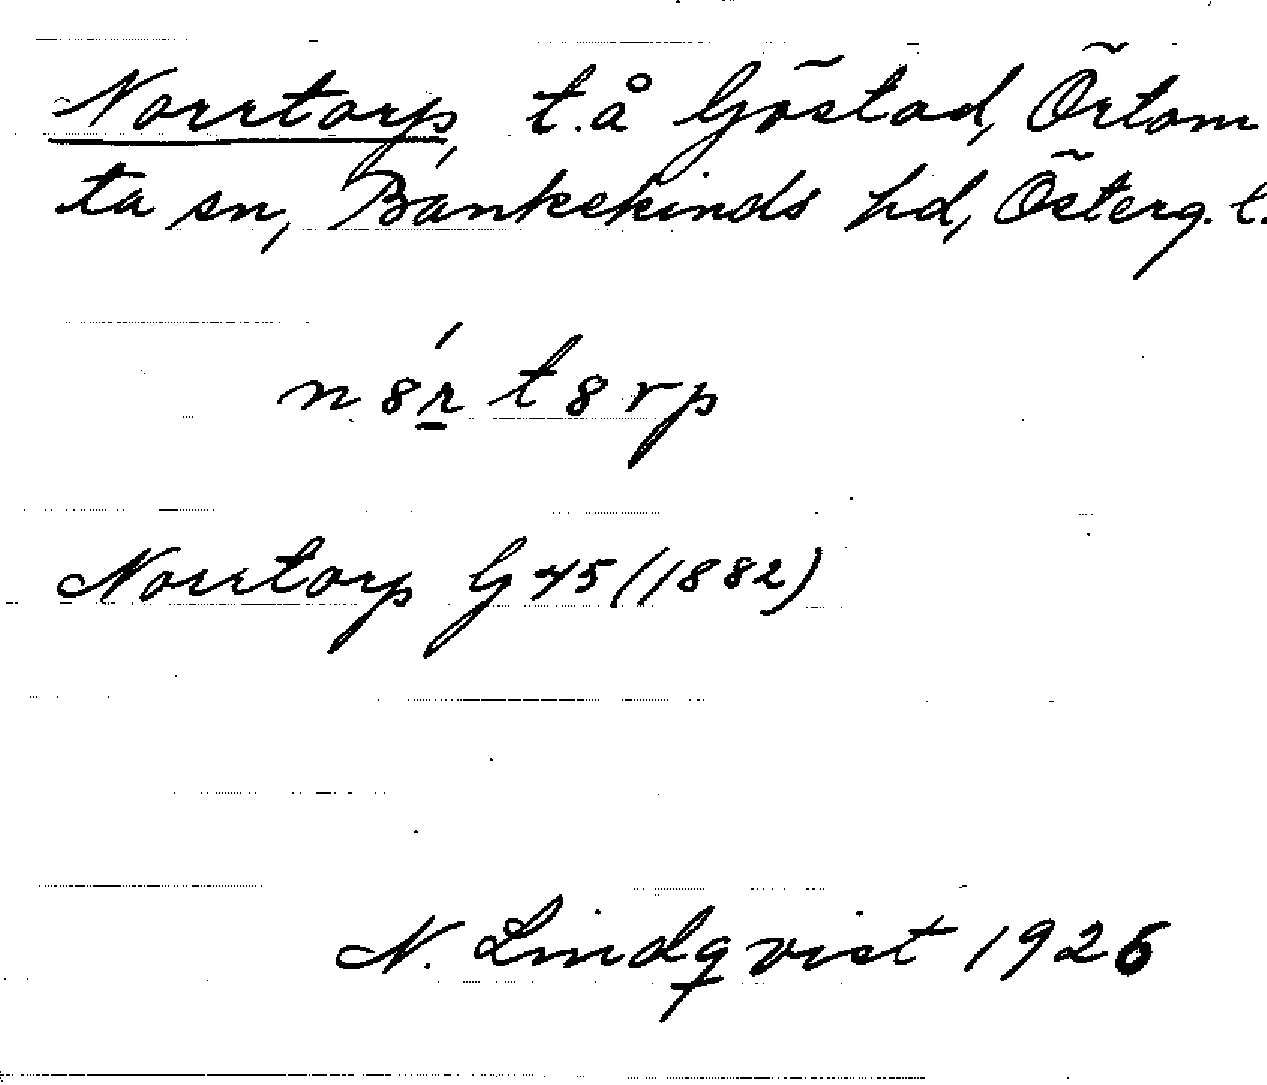 Norrtorp, t. å Göstad, Örtom
ta sn, Bankekinds hd, Österg. l.
n8́r̲ t8rp
Norrtorp G 45 (1882)
N. Lindqvist 1926